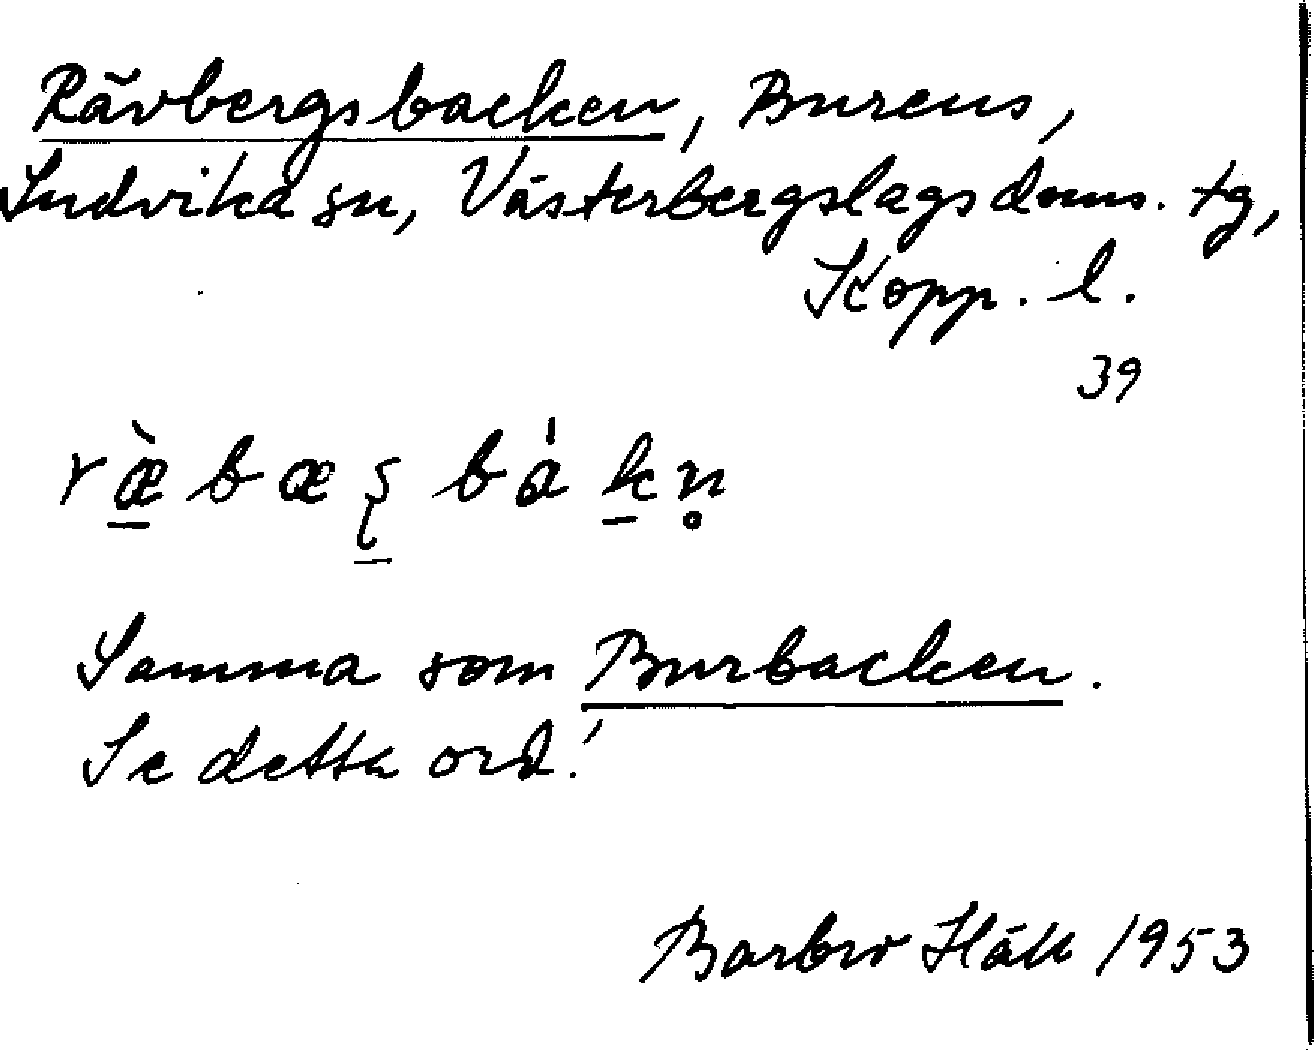 Rävbergsbacken, Burens,
Ludvika sn, Västerbergslags doms. tg,
Kopp. l.
39
ræ̀bæʂ bák̠n̥
Samma som Burbacken.
Se detta ord!
Barbro Häll 1953